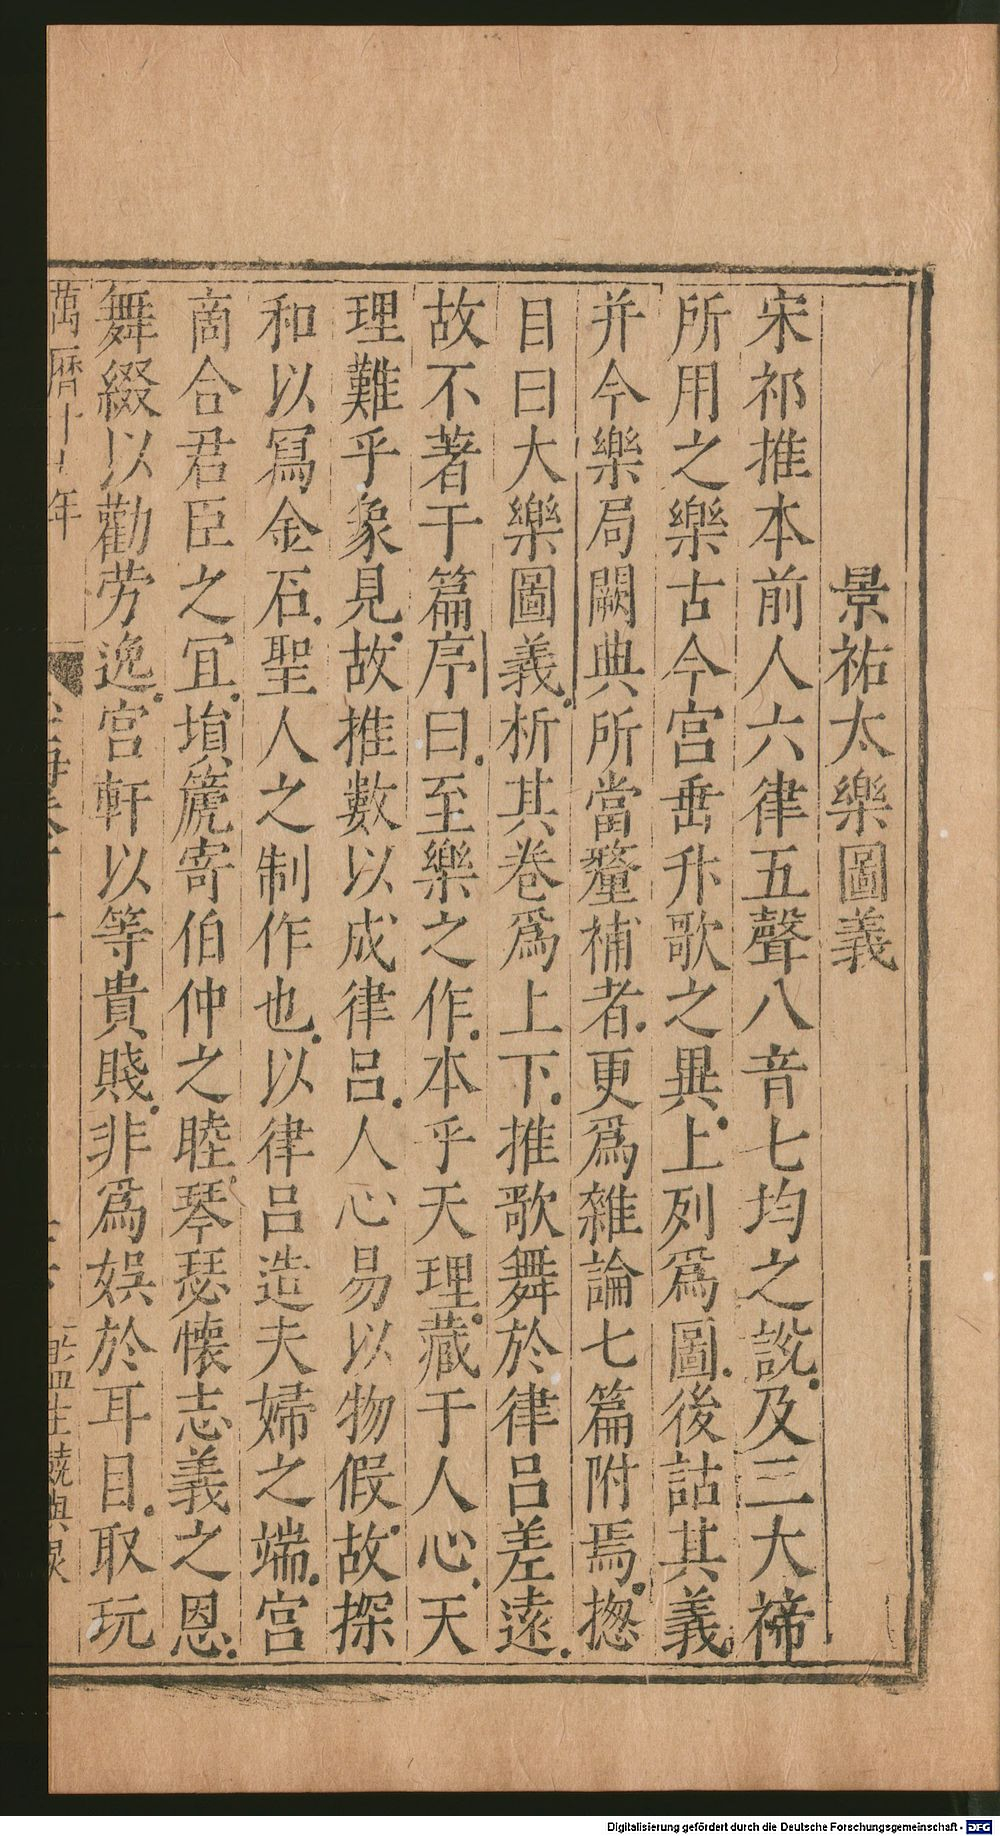 景祐太樂圖義
宋祁推本前人六律五聲八音七均之說及三大禘
所用之樂古今宮垂升歌之異上列爲圖後詁其義
并今樂局闕典所當釐補者更爲雜論七篇附焉揔
目曰大樂圖義析其卷爲上下推歌舞於律呂差遠
故不著于篇序曰至樂之作本乎天理藏于人心天
理難乎象見故推數以成律呂人心易以物假故探
和以寫金石聖人之制作也以律呂造夫婦之端宮
商合君臣之冝塤篪寄伯仲之睦琴瑟懷志義之恩
舞綴以勸劳逸宮軒以等貴賤非爲娛於耳目取玩
萬曆十年
Digitalisierung gefördert durch die Deutsche Forschungsgemeinschaft - DFG